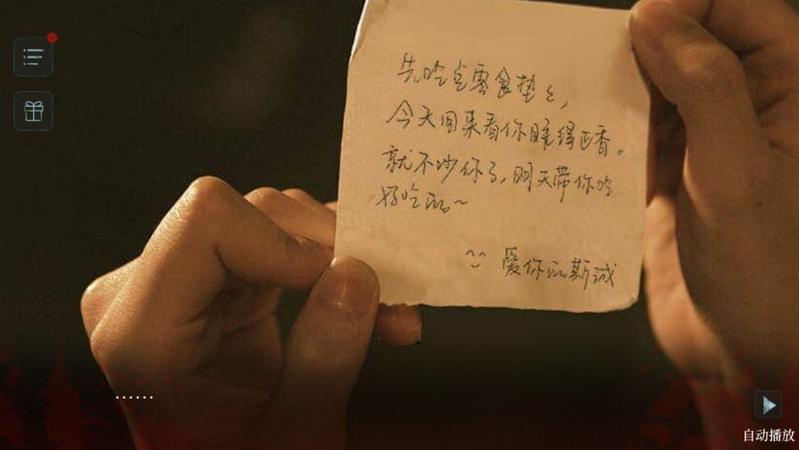 先吃点零食垫垫,
今天回来看你睡得正香。
就不吵你了,明天带你吃
好吃的~
^^ 爱你的斯诚
......
自动播放